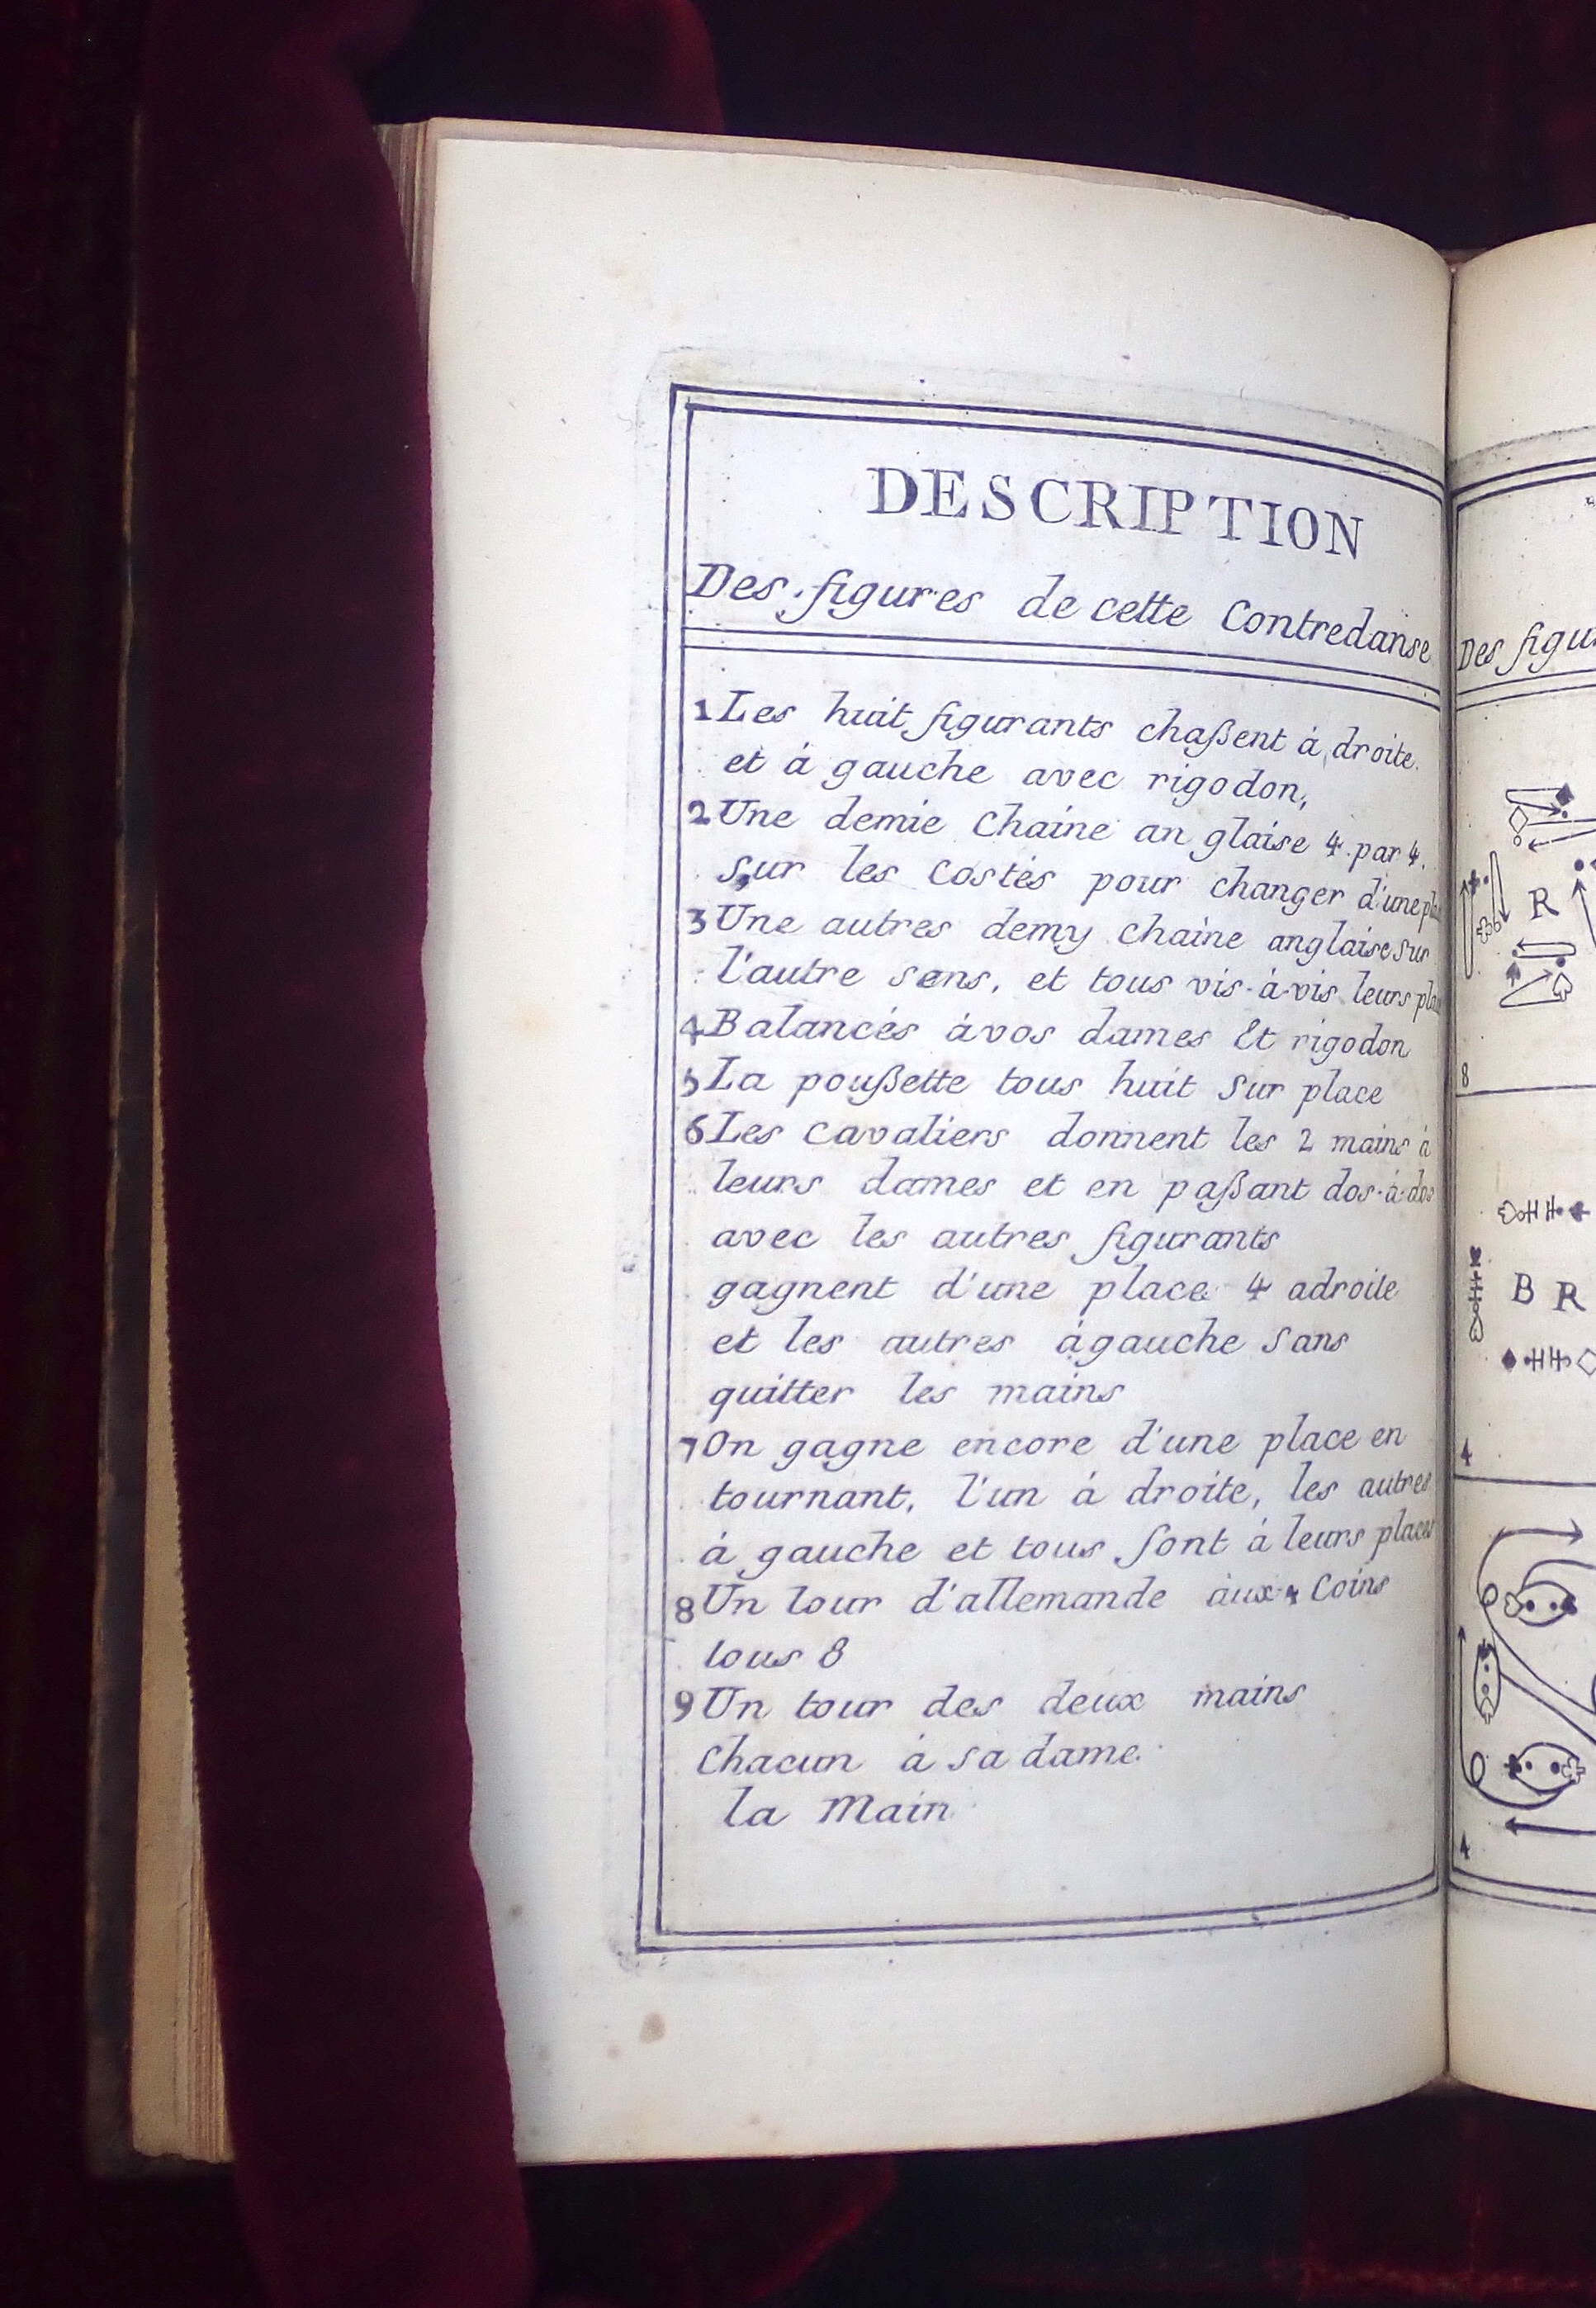 DESCRIPTION
Des figures de cette Contredanse
1 Les huit figurants chaßent à droite
et à gauche avec rigodon,
2 Une demie Chaine an glaise 4 par 4.
sur les Costés pour changer d'une
3 Une autres demy chaine anglaise sur
l'autre sens, et tous vis-à-vis leurs
4 Balancés àvos dames Et rigodon
5 La poußette tous huit Sur place
6 Les cavaliers donnent les 2 mains à
leurs dames et en paßant dos-à-dos
avec les autres figurants
gagnent d'une place 4 adroite
et les autres àgauche Sans
quitter les mains
7 On gagne encore d'une place en
tournant, l'un à droite, les autres
à gauche et tous Sont à leurs places
8 Un tour d'allemande aux 4 Coins
tous 8
9 Un tour des deux mains
Chacun à sa dame.
la Main
Des
R
8
B R
4
4